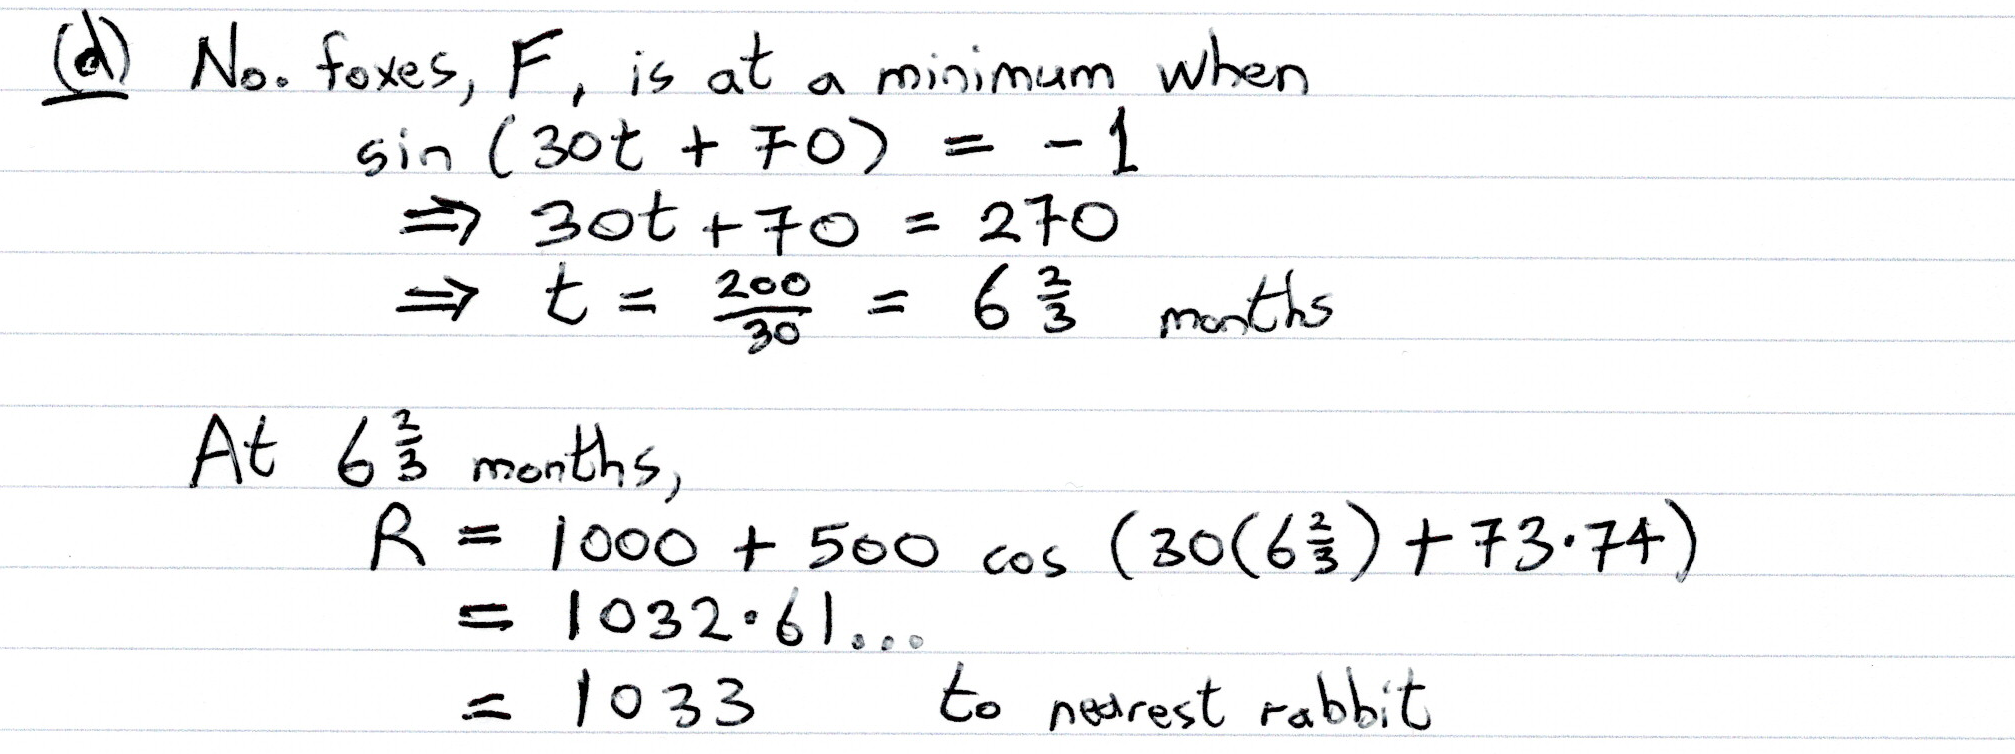 (d) No. foxes, F, is at a minimum when
sin (30t + 70) = -1
⇒ 30t + 70 = 270
⇒ t = 200/30 = 6 2/3 months
At 6 2/3 months,
R = 1000 + 500 cos (30(6 2/3) + 73·74)
= 1032·61...
= 1033 to nearest rabbit